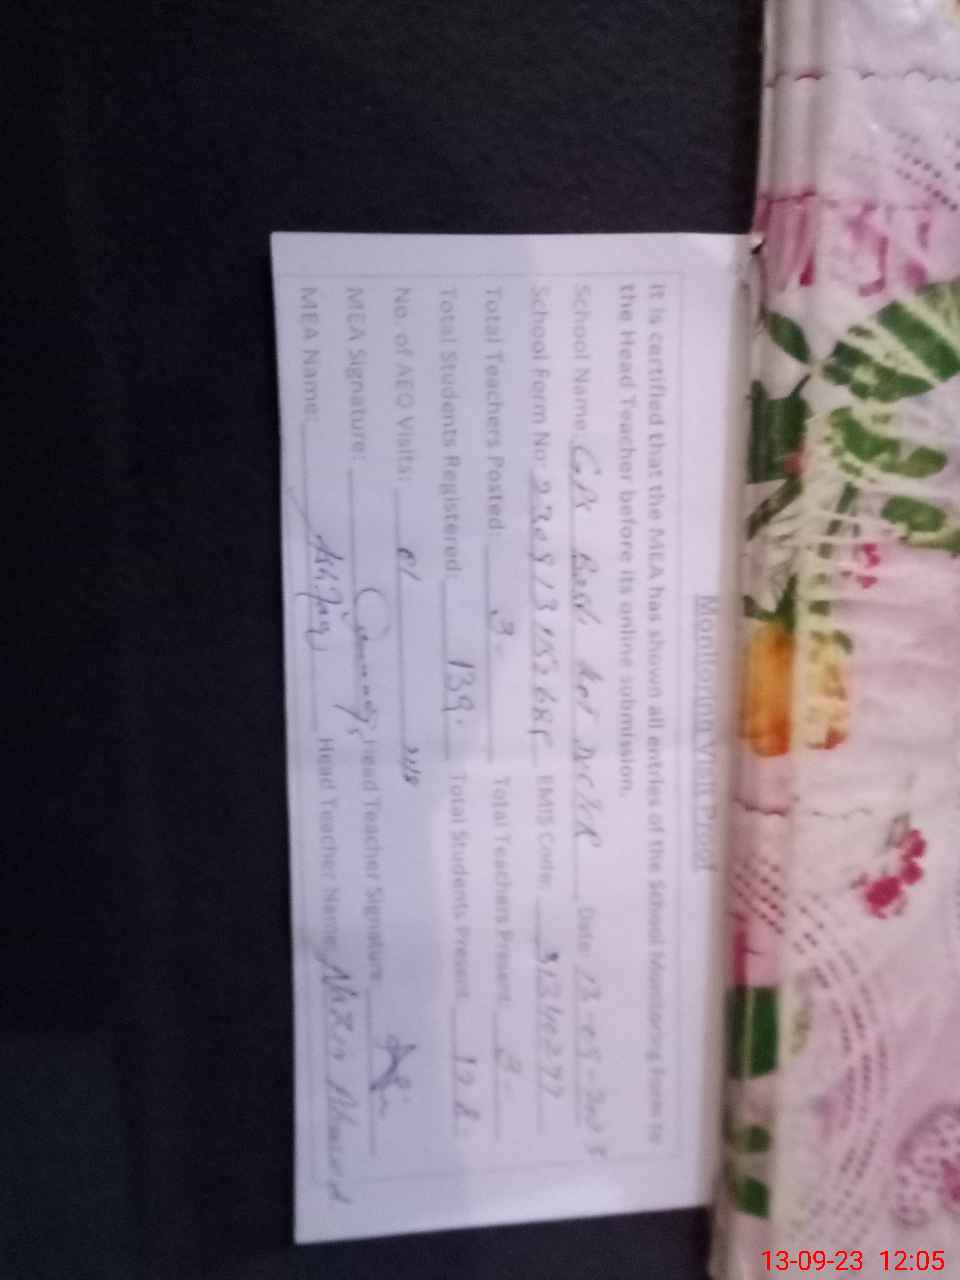 Monitoring Visit Proof
It is certified that the MEA has shown all entries of the School Monitoring Form to
the Head Teacher before its online submission.
School Name: GPS Date: 13-09-202
School Form No: EMIS Code: 31340277
Total Teachers Posted: 3 Total Teachers Present: 3
Total Students Registered: 139 Total Students Present:
No. of AEO Visits: 01
MEA Signature: Head Teacher Signature
MEA Name: Ashfaq Head Teacher Name: Ahmed
13-09-23 12:05